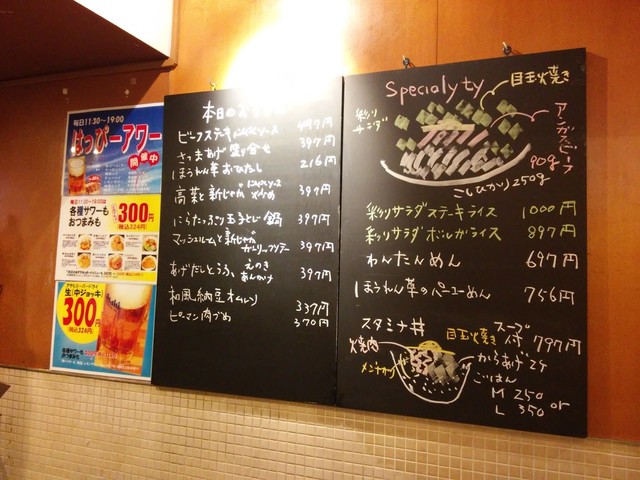 毎日11:30~19:00
はっぴーアワー
開催中
毎日11:30~19:00
各種サワーも
おつまみも
300円
(税込324円)
アサヒスーパードライ
生(中ジョッキ)
300円
(税込324円)
各種サワーも
おつまみも
本日のお
ビーフステーキにんにくソース 497円
さつまあげ盛り合せ 397円
ほうれん草おひたし 216円
高菜と新じゃが 397円
にらたっぷり玉子とじ鍋 397円
マッシュルームと新じゃが
ガーリックソテー 397円
あげだしとうふ えのき
あんかけ 397円
和風納豆オムレツ 337円
ピーマン肉づめ 370円
Specialyty
目玉焼き
彩り
サラダ
アンガスビーフ
90g
こしひかり250g
彩りサラダステーキライス 1000円
彩りサラダボルガライス 897円
わんたんめん 697円
ほうれん草のバーユーめん 756円
スタミナ丼
スープ
付 797円
焼肉
目玉焼き
からあげ2ケ
メンチカツ
ごはん
M 250
or
L 350